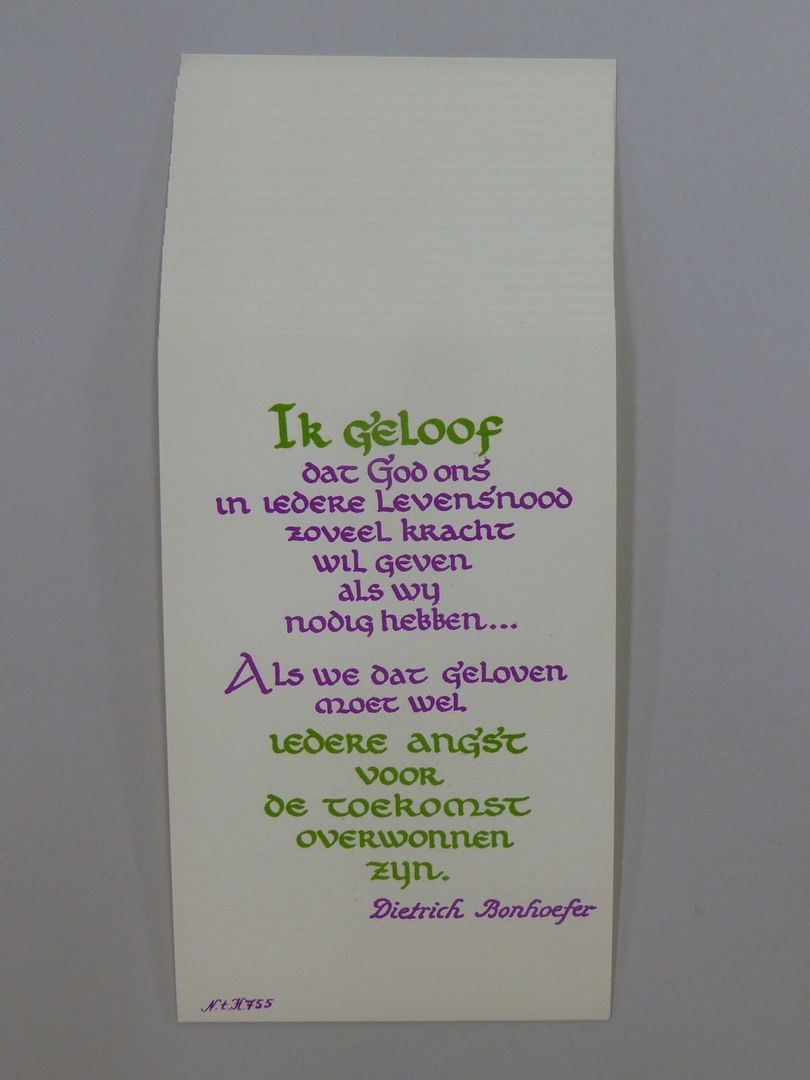 Ik geloof
dat God ons
in iedere levensnood
zoveel kracht
wil geven
als wij
nodig hebben...
Als we dat geloven
moet wel
iedere angst
voor
de toekomst
overwonnen
zijn.
Dietrich Bonhoefer
N.t.H755